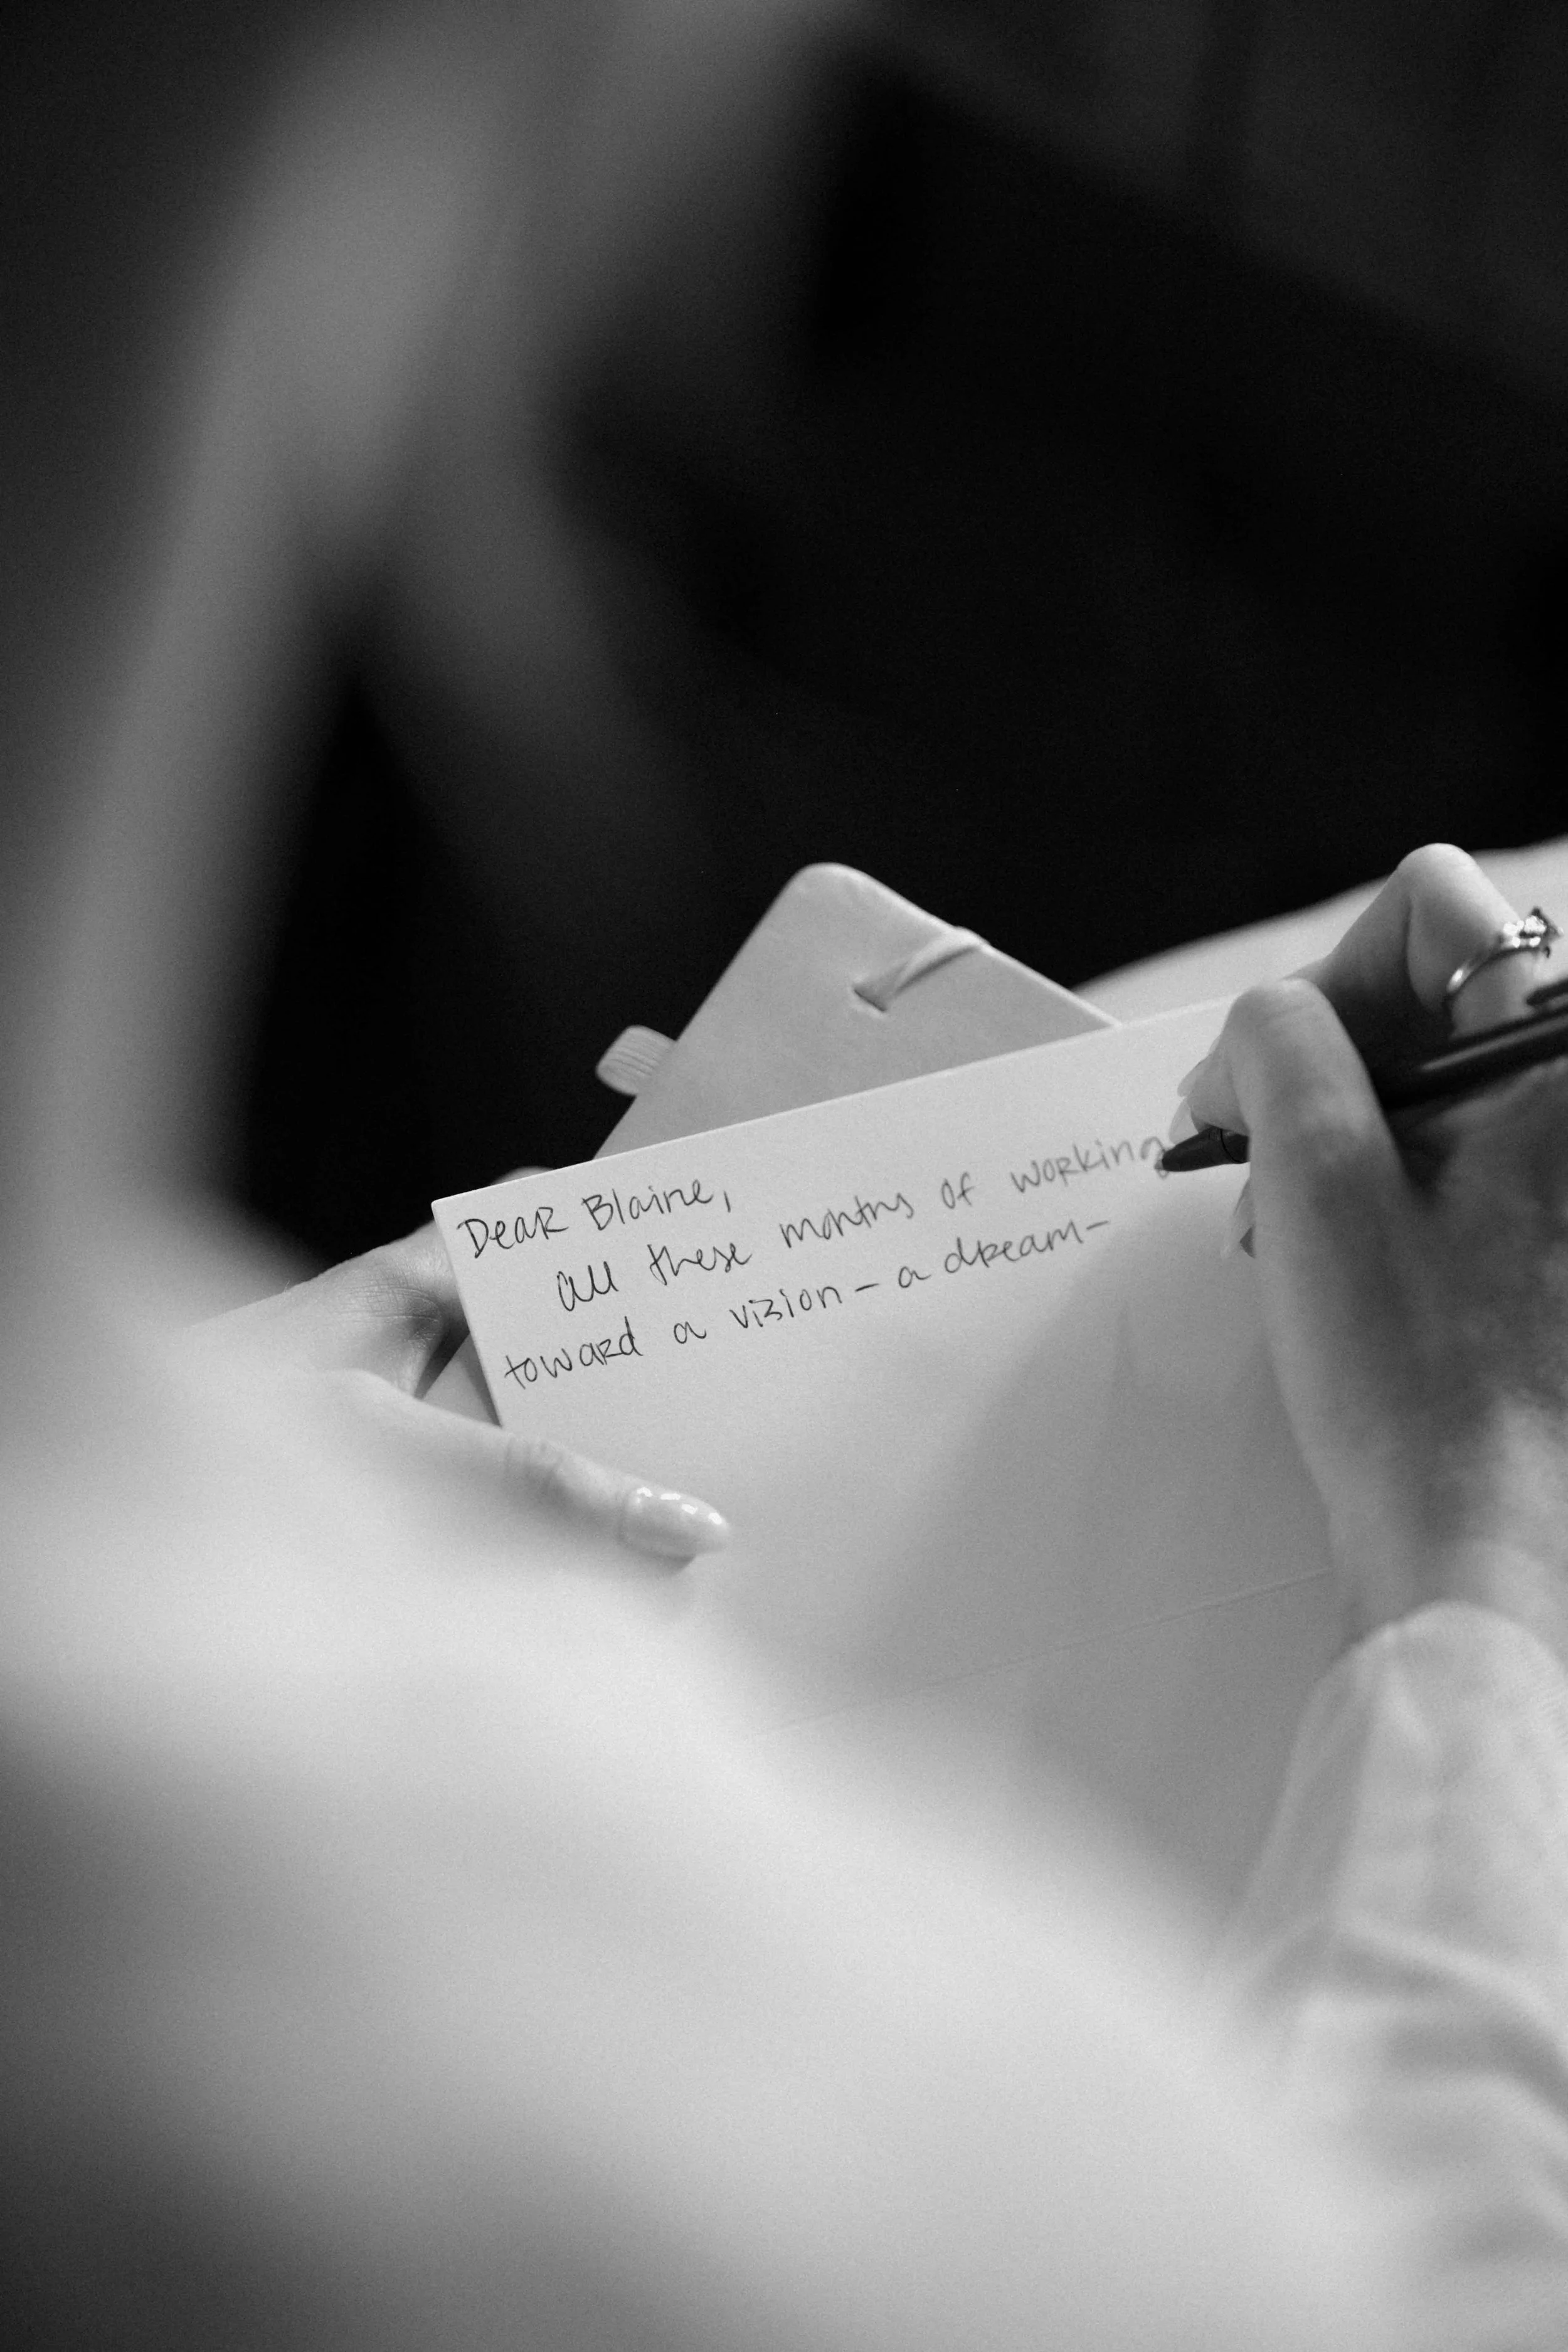 Dear Blaine,
all these months of working
toward a vision – a dream –